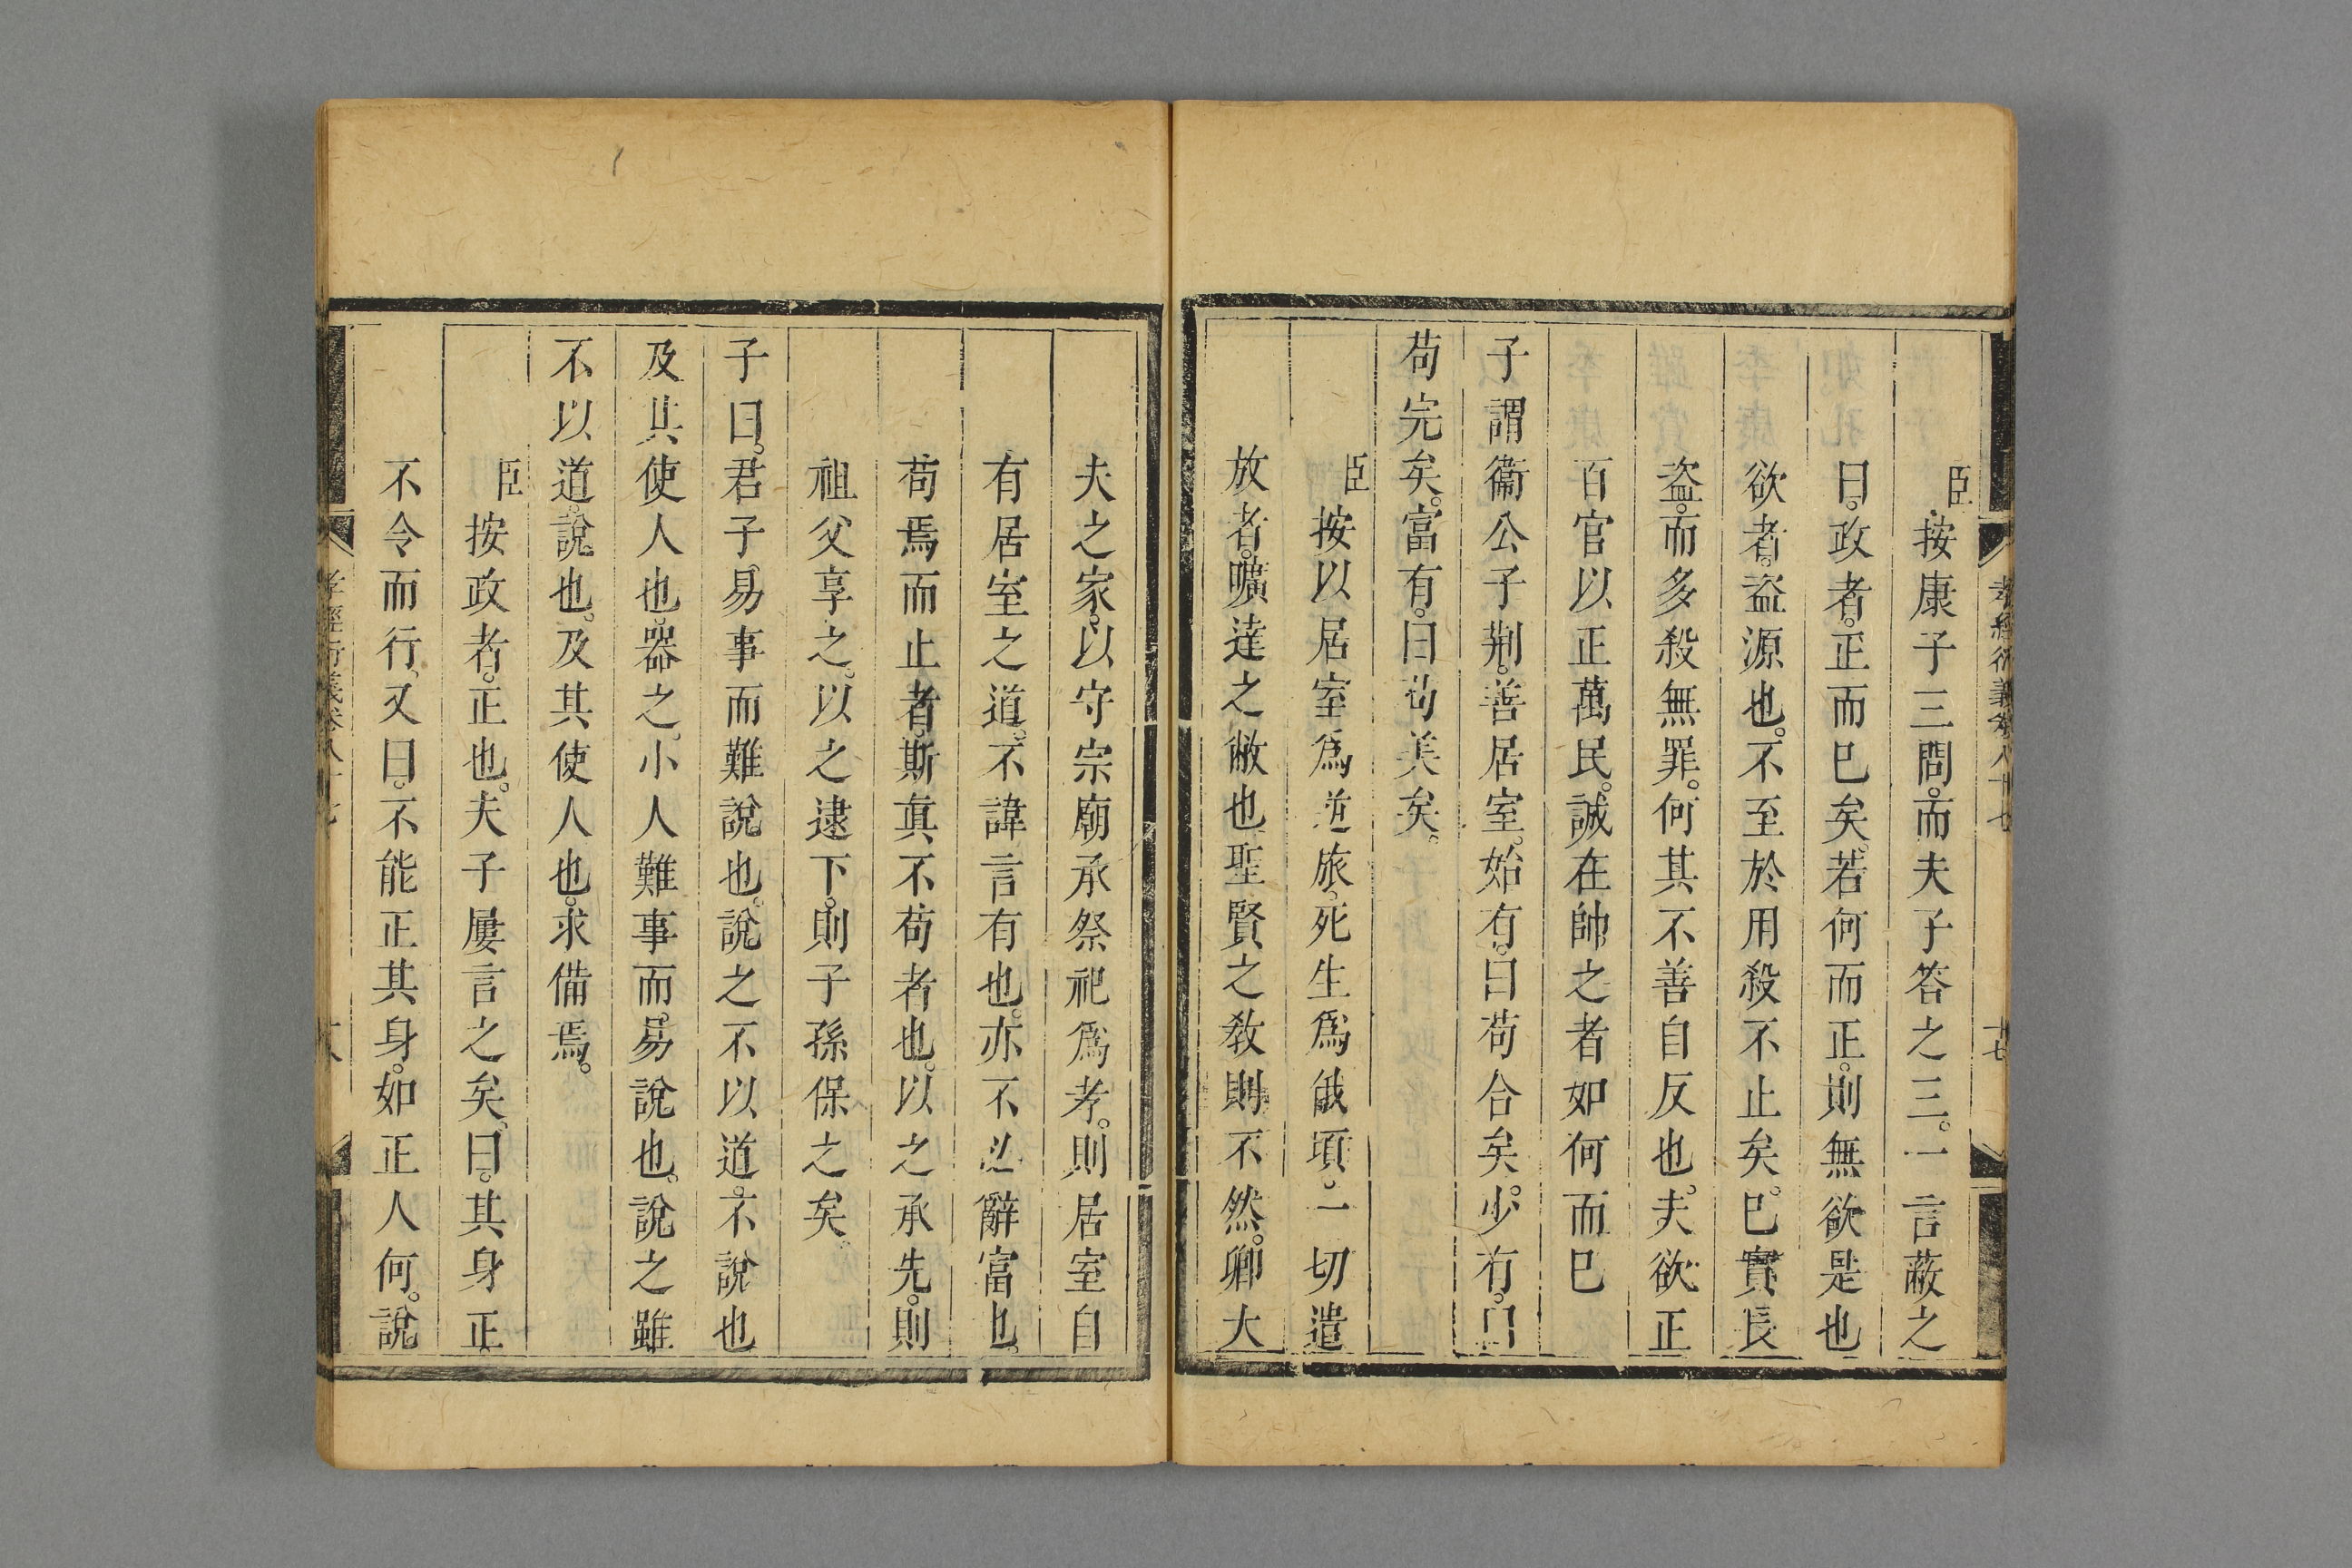 孝經衍義卷八十七 十七
臣按康子三問。而夫子答之三。一言蔽之
曰。政者。正而巳矣。若何而正。則無欲是也
欲者。盜源也。不至於用殺不止矣。巳實長
盜。而多殺無罪。何其不善自反也。夫欲正
百官以正萬民。誠在帥之者如何而巳
子謂衞公子荆。善居室。始有。曰苟合矣。少有。曰
苟完矣。富有。曰苟美矣。
臣按以居室爲逆旅。死生爲俄頃。一切遣
放者。曠達之敝也聖賢之敎則不然。卿大
夫之家。以守宗廟承祭祀爲孝。則居室自
有居室之道。不諱言有也。亦不必辭富也。
苟焉而止者。斯眞不苟者也。以之承先。則
祖父享之。以之逮下。則子孫保之矣。
子曰。君子易事而難說也。說之不以道。不說也
及其使人也。器之。小人難事而易說也。說之雖
不以道。說也。及其使人也。求備焉。
臣按政者。正也。夫子屢言之矣。曰。其身正
不令而行。又曰。不能正其身。如正人何。說
孝經衍義卷八十七